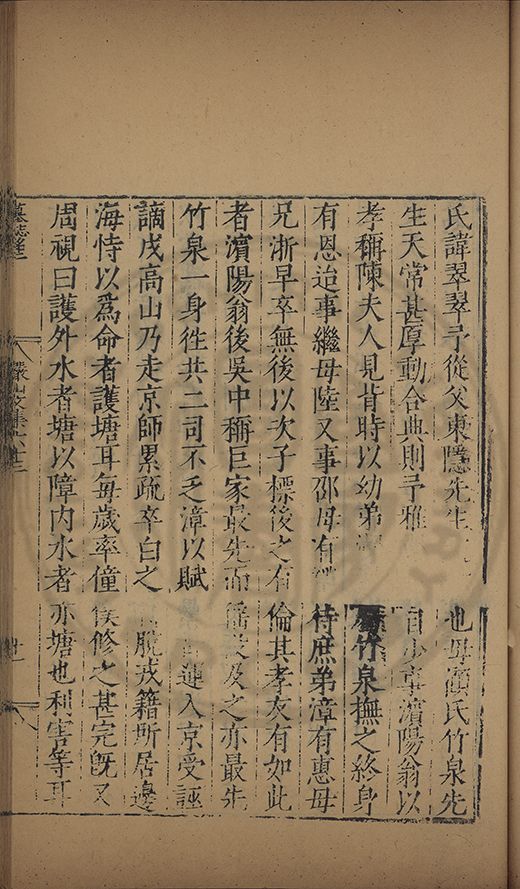 氏諱翠翠予從父東隱先生也母顧氏竹泉先
生天常甚厚動合典則予雅自少事瀕陽翁以
孝稱陳夫人見背時以幼弟竹泉撫之終身
有恩迨事繼母陸又事邵母有待庶弟漳有惠母
兄浙早卒無後以次子標後之有倫其孝友有如此
者瀕陽翁後吳中稱巨家最先而及之亦最先
竹泉一身徃共二司不乏漳以賦連入京受誣
謫戍高山乃走京師累疏卒白之脫戎籍所居邊
海恃以爲命者護塘耳每歲率僮修之甚完旣又
周視曰護外水者塘以障内水者亦塘也利害等耳
墓誌
儼山文集